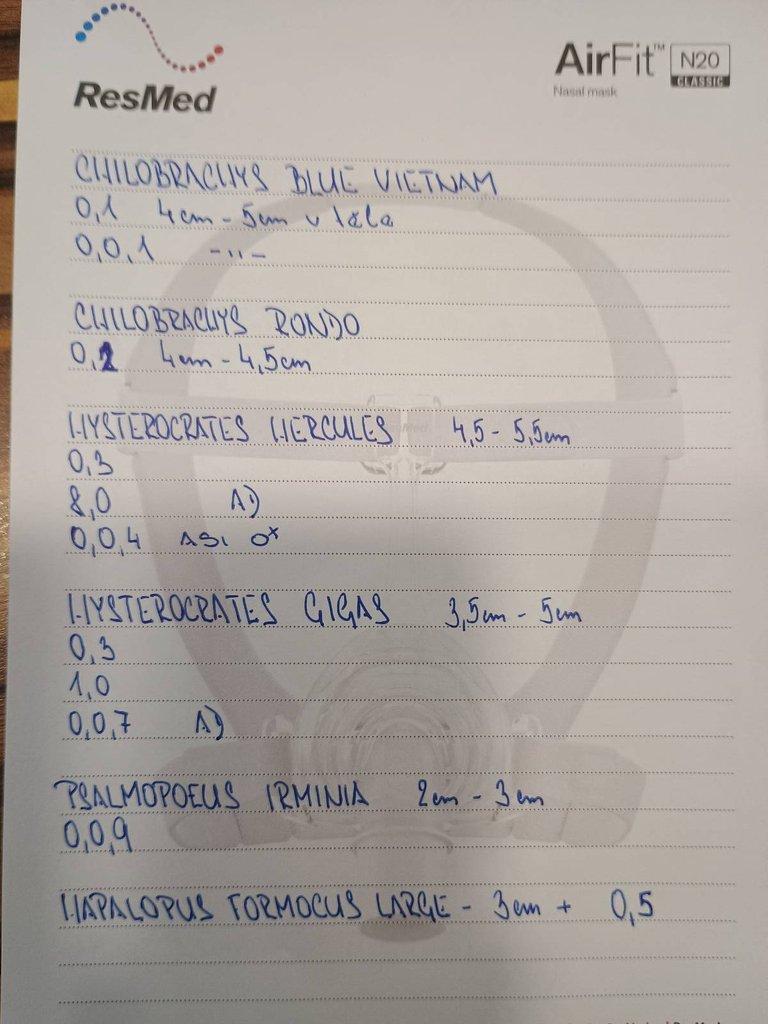 ResMed
AirFit™ N20
CLASSIC
Nasal mask
CHILOBRACHYS BLUE VIETNAM
0,1 4cm - 5cm v těle
0,0,1 -11-
CHILOBRACHYS RONDO
0,2 4cm - 4,5cm
HYSTEROCRATES HERCULES 4,5 - 5,5cm
0,3
8,0 AD
0,0,4 ASI
HYSTEROCRATES GIGAS 3,5cm - 5cm
0,3
1,0
0,0,7 AD
PSALMOPOEUS IRMINIA 2cm - 3cm
0,0,9
HAPALOPUS FORMOCUS LARGE - 3cm + 0,5